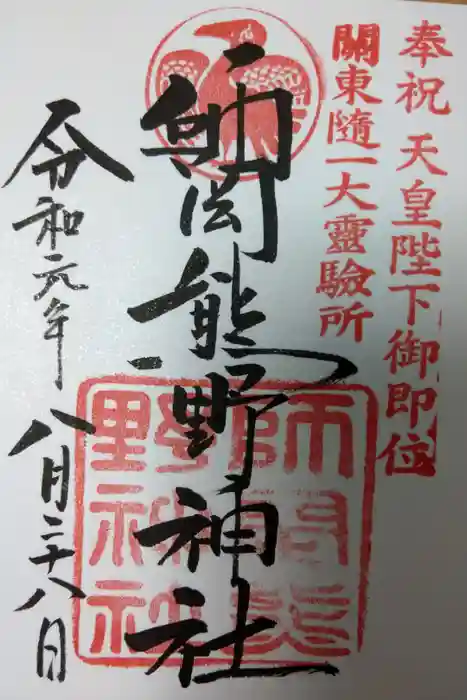 奉祝 天皇陛下御即位
關東隨一大靈驗所
師岡熊野神社
令和元年 八月二十八日
師岡熊
野神社